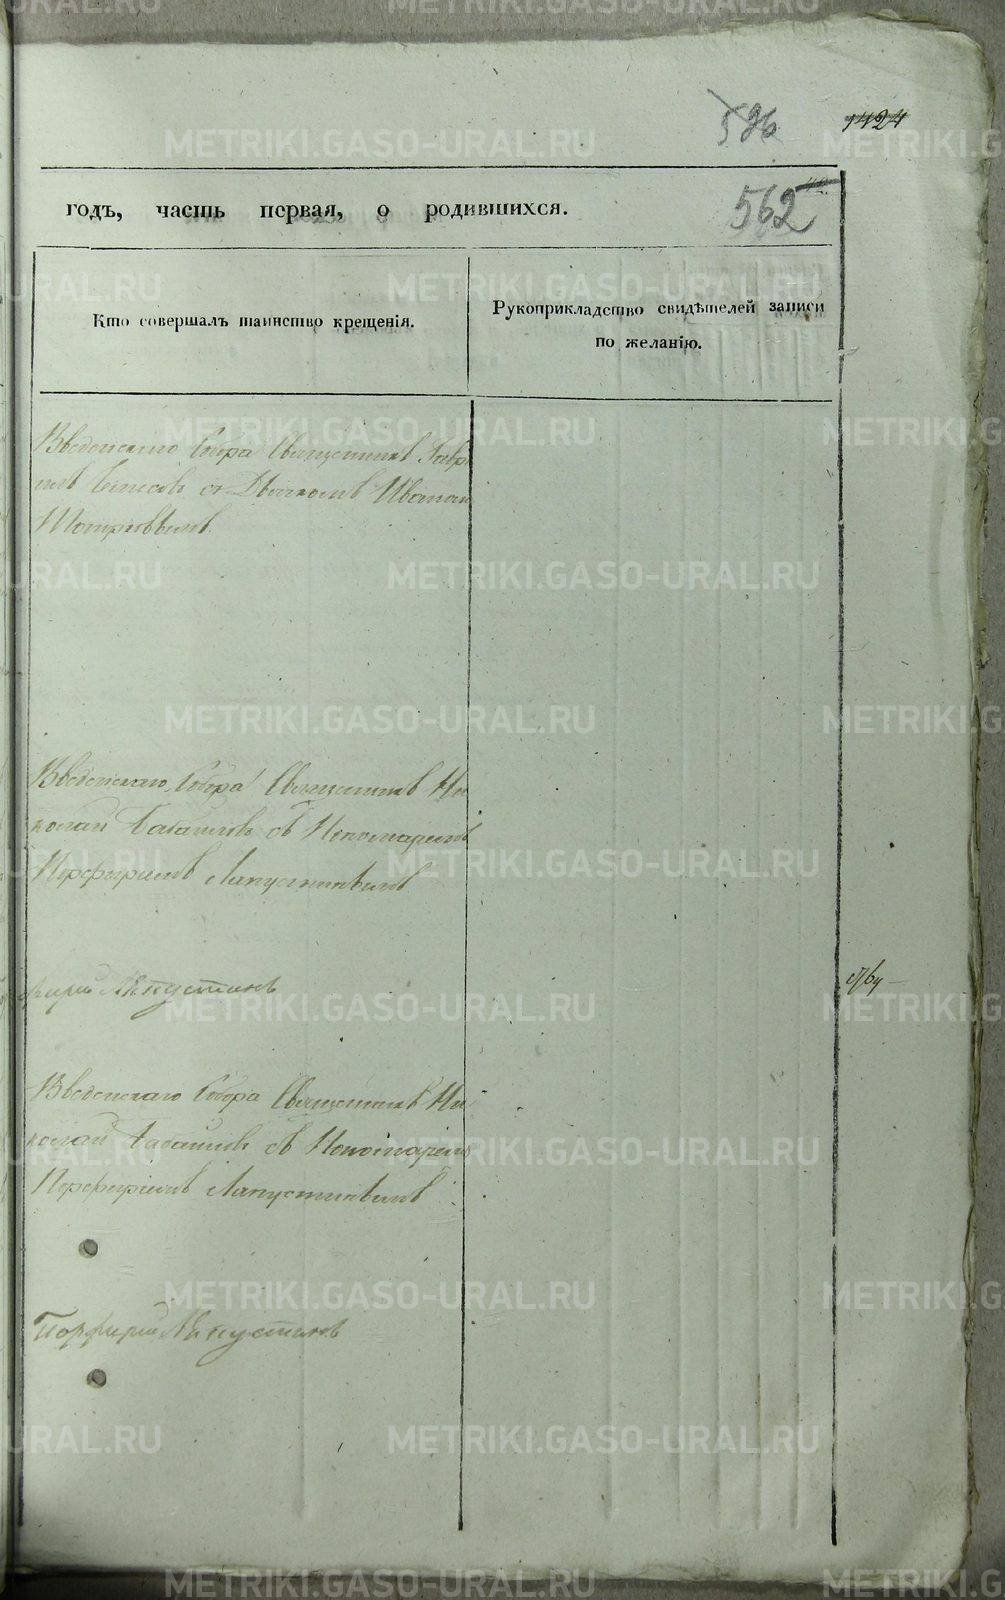 596 1424
562
годъ, часть первая, о родившихся.
Кто совершалъ таинство крещенія.
Рукоприкладство свидѣтелей записи
по желанію.
Введенскаго Собора Священникъ
съ Дьячкомъ Иваном
Введенскаго Собора Священникъ Ни
колай съ Пономаремъ
Порфиріемъ Лапустинымъ
фирій Лапустинъ
Введенскаго Собора Священникъ Ни
колай съ Пономаремъ
Порфиріемъ Лапустинымъ
Порфирій Лапустинъ
METRIKI.GASO-URAL.RU